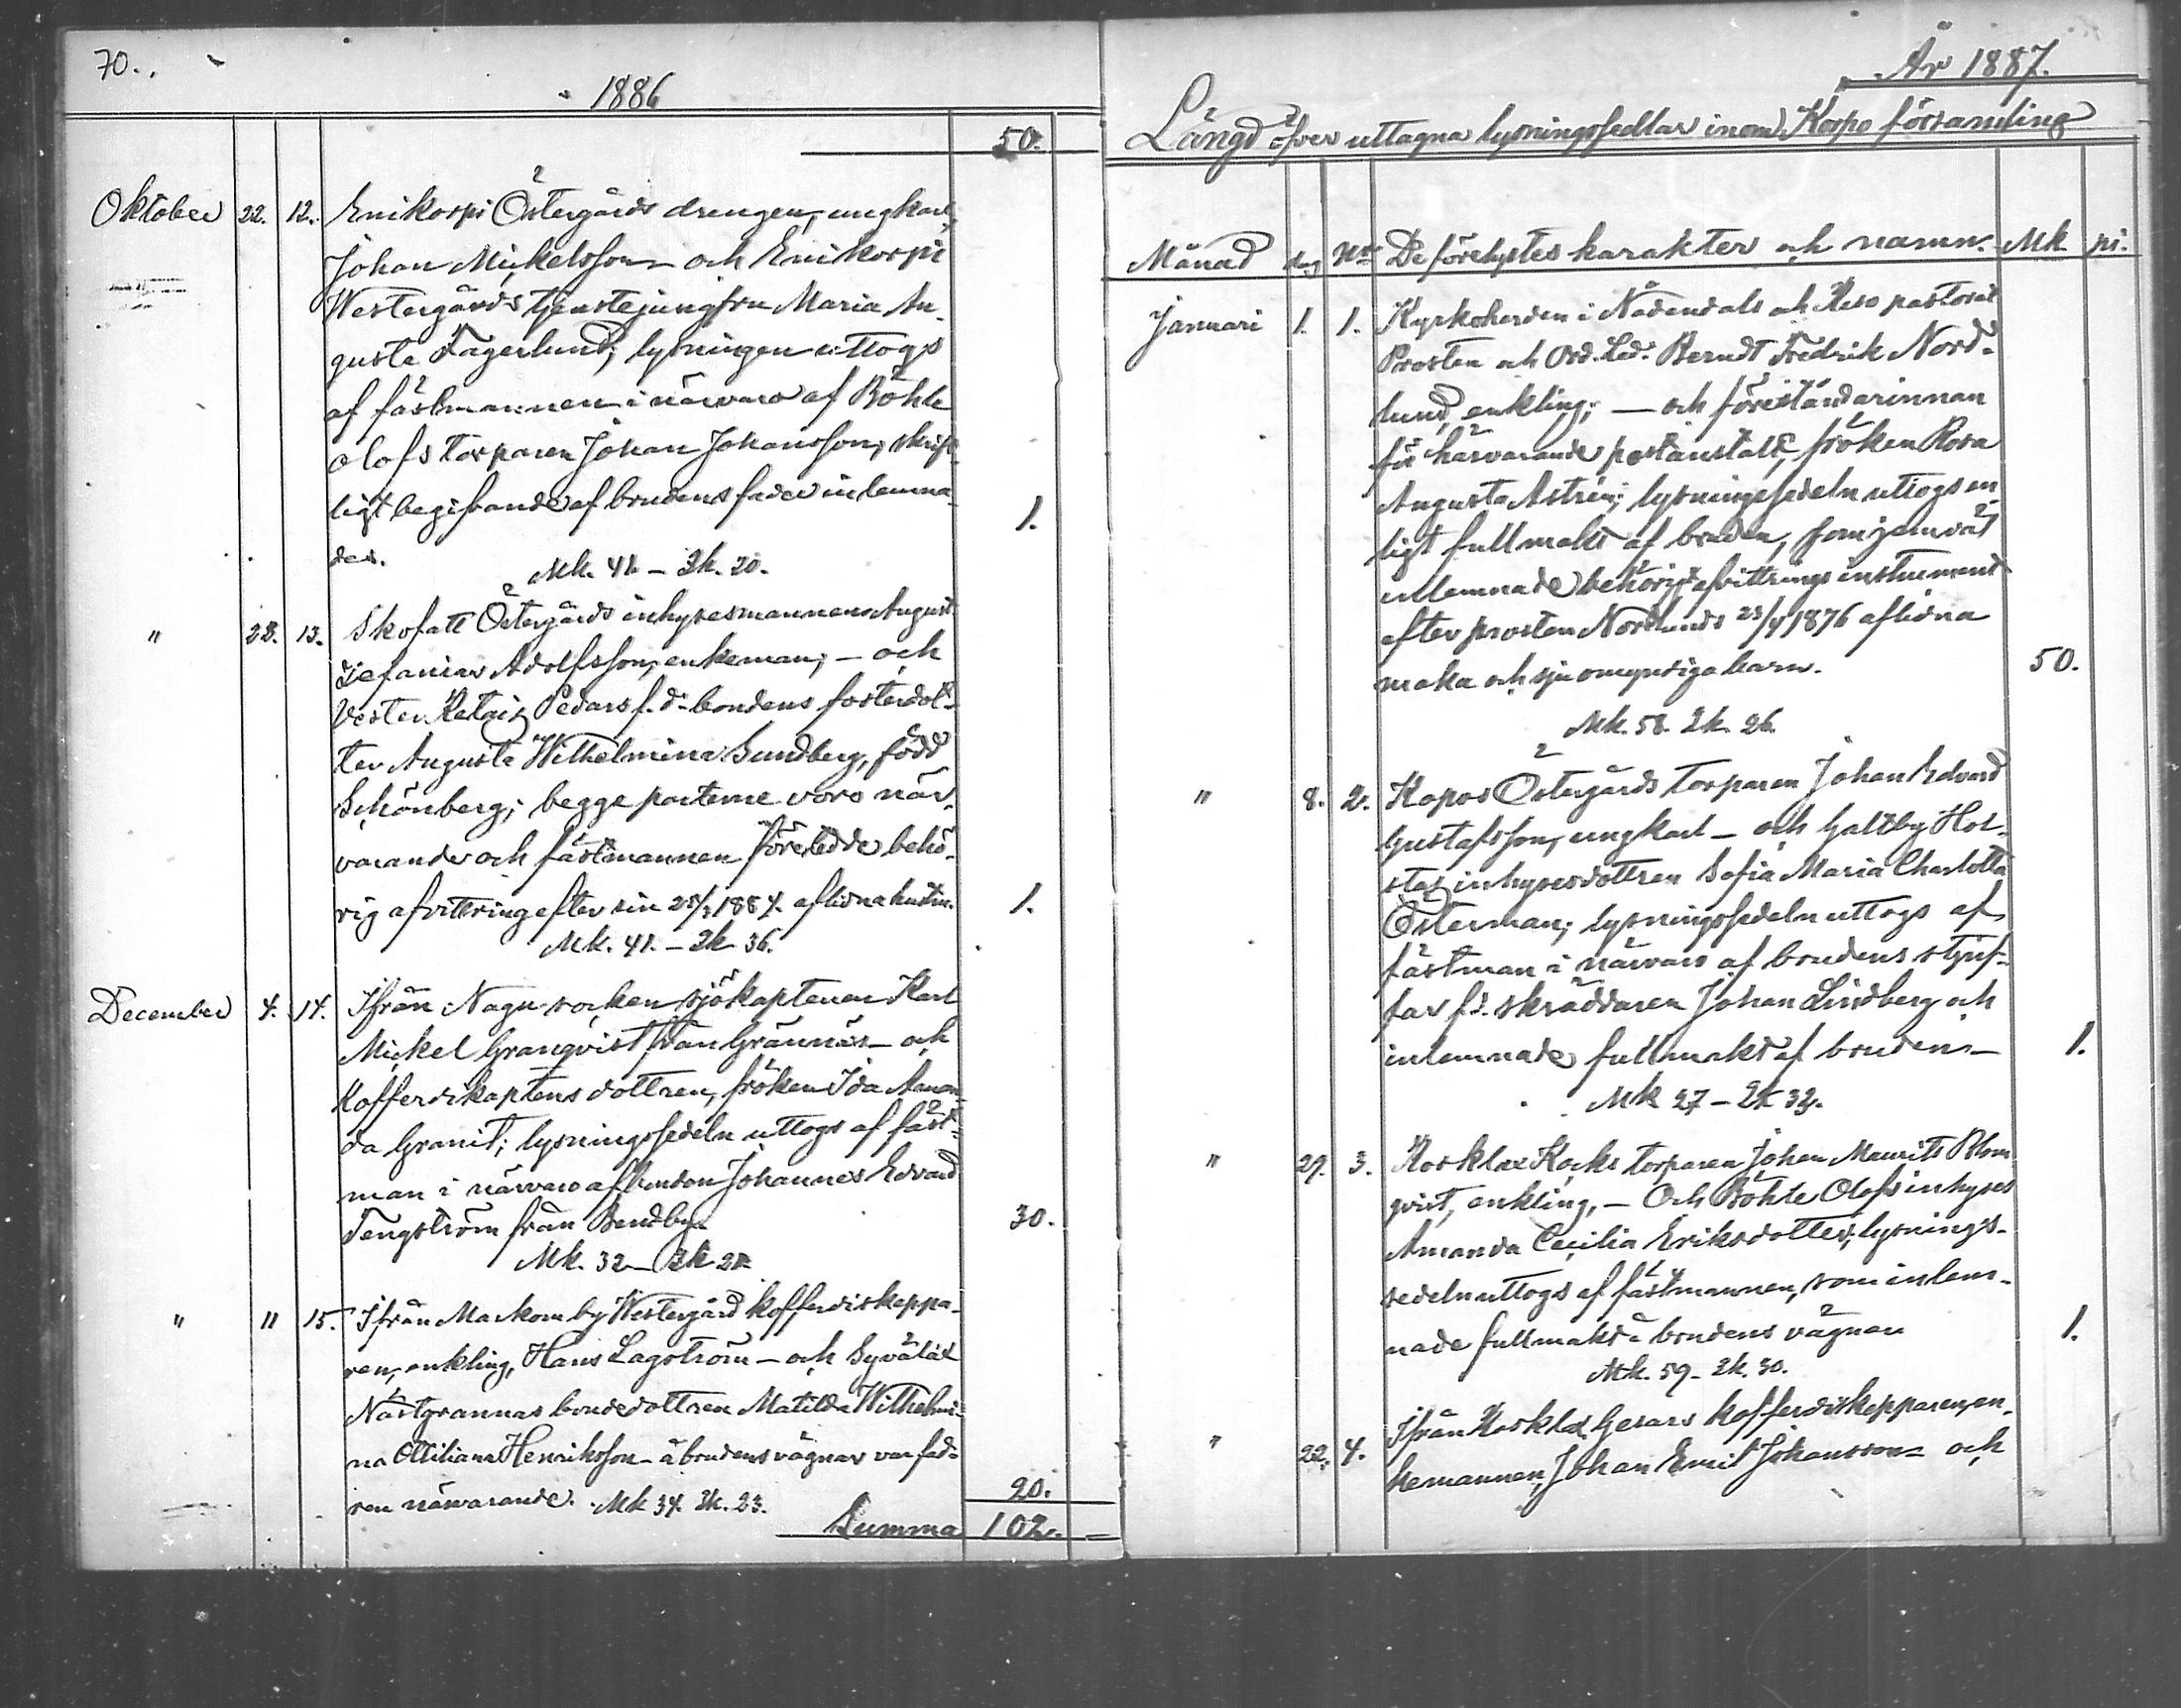 70.
1886
50.
Oktober 22. 12. Enikorpi Östergårds drengen, ungkarl,
Johan Mickelsson och Enikorpi
Westergårds tjenstejungfru Maria Au-
gusta Fagerlund; lysningen uttogs
af fästmannen i närvaro af Röhle
Olofs torparen Johan Johansson; skrift-
ligt begifvande af brudens fader inlemna- 1.
des.
Mk. 41 - 2k. 20.
" 28. 13. Skofatt Östergårds inhysesmannen August
Zefanias Adolfsson, enkeman; - och
Vester Retais Pedars f. d. bondens fosterdot-
ter Augusta Wilhelmina Sundberg, född
Schönberg; begge parterne voro när-
varande och fästmannen företedde behö-
rig afvittring efter sin 1884 aflidna hustru. 1.
Mk. 41. - 2k 36.
December 4. 14. Ifrån Nagu socken sjökaptenen Karl
Mickel Granqvist från Grännäs - och
Kofferdikaptens dottren, fröken Ida Aman-
da Granit; lysningssedeln uttogs af fäst-
man i närvaro af bonden Johannes Edvard
Tengström från Bendby. 30.
Mk. 32 - 2k 28
" " 15. Ifrån Markomby Westergård kofferdiskeppa-
ren, enkling, Hans Lagström - och Gyvälax
Nästgrannas bondedottren Matilda Wilhelmi-
na Ottiliana Henriksson - å brudens vägnar var fad-
ren närvarande. Mk 34. 2k. 23. 20.
Summa 102. -
År 1887.
Längd öfver uttagna lysningssedlar inom Korpo församling
Månad dag No De förelystes karakter och namn. Mk pi.
Januari 1. 1. Kyrkoherden i Nådendals och Reso pastorat
Prosten och Ord. Led. Berndt Fredrik Nord-
lund, enkling; - och föreståndarinnan
för härvarande postanstalt, fröken Rosa
Augusta Astrén; lysningssedeln uttogs en-
ligt fullmakt af bruden, som jemväl
inlemnade behörigt afvittrings instrument
efter prosten Nordlunds 23/4 1876 aflidna
maka och sju omyndiga barn. 50.
Mk. 58. 2k. 26.
" 8. 2. Kopos Östergårds torparen Johan Edvard
Gustafsson, ungkarl - och Galtby Hol-
stas inhysesdottren Sofia Maria Charlotta
Österman; lysningssedeln uttogs af
fästman i närvaro af brudens stjuf-
far f. d. skräddaren Johan Lindberg och
inlemnade fullmakt af bruden. - 1.
Mk 27 - 2k 32.
" 29. 3. Korklax Kocks torparen Johan Maurits Blom
qvist, enkling, - Och Röhle Olofs inhyses
Amanda Cecilia Eriksdotter; lysnings-
sedeln uttogs af fästmannen, som inlem-
nade fullmakt å brudens vägnar 1.
Mk. 59 - 2k. 30.
" 22. 4. Ifrån Korklax Gerars kofferdiskepparen, en-
kemannen, Johan Emil Johansson - och